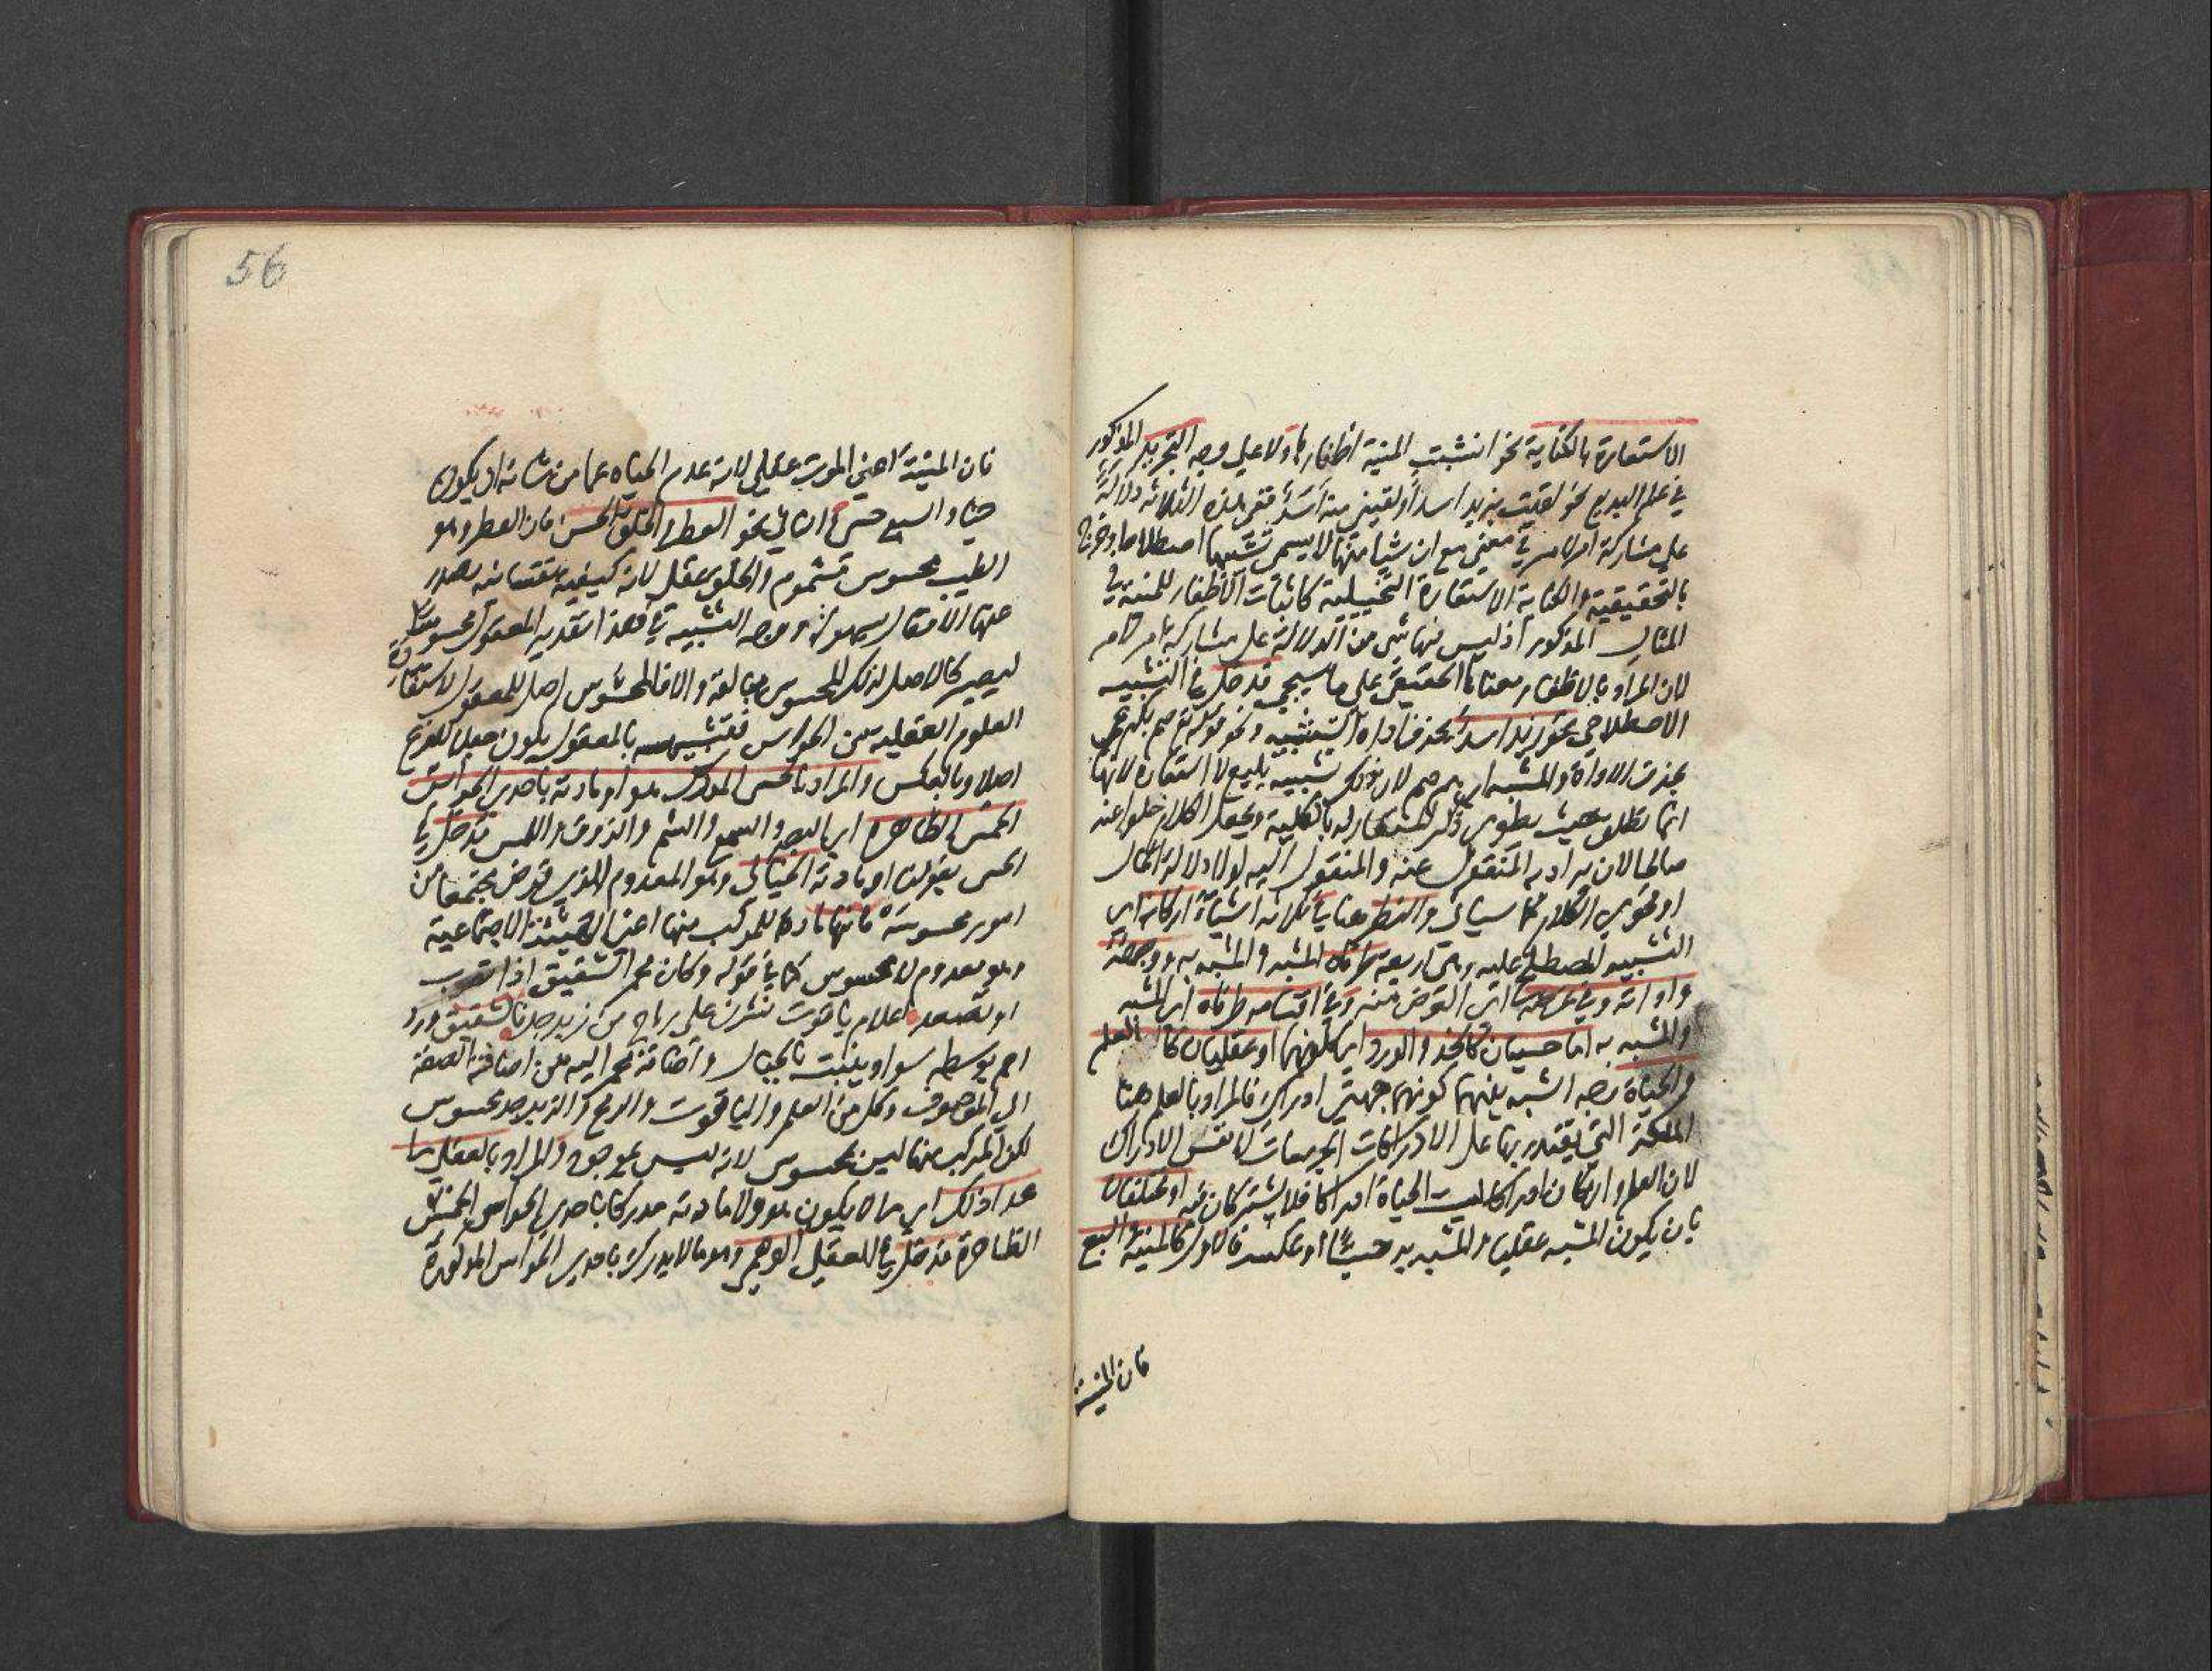 الاستعارة بالكناية نحو انشبت المنية اظفارها ولا على وجه التجريد المذكور
في علم البديع نحو لقيت بزيد اسدا ولقيني منه اسد ففي هذه الثلاثة دلالة
على مشاركة امر لامر في معنى مع ان شيا منها لا يسمى تشبيها اصطلاحا وخرج
بالتحقيقية والكناية الاستعارة التخييلية كاثبات الاظفار للمنية في
المثال المذكور اذ ليس فيها شي من الدلالة على مشاركة امر لامر
لان المراد بالاظفار معناها الحقيقي على ما سيجي فدخل في التشبيه
الاصطلاحي نحو زيد اسد بحذف اداة التشبيه ونحو قوله تع صم بكم عمي
بحذف الاداة والمشبه اي هم صم لان ذلك تشبيه بليغ لا استعارة لانها
انما تطلق حيث يطوى ذكر المستعار له بالكلية ويجعل الكلام خلوا عنه
صالحا لان يراد به المنقول عنه والمنقول اليه لولا دلالة الحال
او فحوى الكلام كما سياتي والنظر هنا في ثلاثة اشياء في اركانه اي
التشبيه المصطلح عليه وهي اربعة طرفاه المشبه والمشبه به ووجهه
واداته وفي غرضه اي الغرض منه وفي اقسامه طرفاه اي المشبه
والمشبه به اما حسيان كالخد والورد اي كلونهما او عقليان كالعلم
والحياة وجه الشبه بينهما كونهما جهتي ادراك فالمراد بالعلم هنا
الملكة التي يقتدر بها على الادراكات الجزءيات لا نفس الادراك
لان العلم وان كان ادراكا ليست الحياة ادراكا فلا يشتركان فيه او مختلفان
بان يكون المشبه عقليا والمشبه به حسيا او عكسه فالاول كالمنية والسبع
فان المنية
56
فان المنية اعني الموت عقلي لانه عدم الحياة عما من شانه ان يكون
حيا والسبع حسي والثاني نحو العطر والخلق الحسن فان العطر وهو
الطيب محسوس مشموم والخلق عقلي لانه كيفية نفسانية يصدر
عنها الافعال بسهولة ووجه التشبيه في هذا تقدير المعقول محسوسا
ليصير كالاصل لذلك المحسوس مبالغة والا فالمحسوس اصل للمعقول لاستفادة
العلوم العقلية من الحواس فتشبيهه بالمعقول يكون جعلا للفرع
اصلا وبالعكس والمراد بالحسي المدرك هو او مادته باحدى الحواس
الخمس الظاهرة اي البصر والسمع والشم والذوق واللمس فدخل في
الحس بقولنا او مادته الخيالي وهو المعدوم الذي فرض مجتمعا من
امور محسوسة فانها مادة للمركب منها اعني الهيئة الاجتماعية
وهو معدوم لا محسوس كما في قوله وكان محمر الشقيق اذا تصوب
او تصعد اعلام ياقوت نشرن على رماح من زبرجد فالشقيق ورد
احمر بوسطه سواد ينبت بالجبال واضافة محمر اليه من اضافة الصفة
الى الموصوف وكل من العلم والياقوت والرمح والزبرجد محسوس
لكن المركب منها ليس بمحسوس لانه ليس بموجود والمراد بالعقلي ما
عدا ذلك اي ما لا يكون هو ولا مادته مدركا باحدى الحواس الخمس
الظاهرة فدخل في العقلي الوهمي وهو ما لا يدرك باحدى الحواس المذكورة